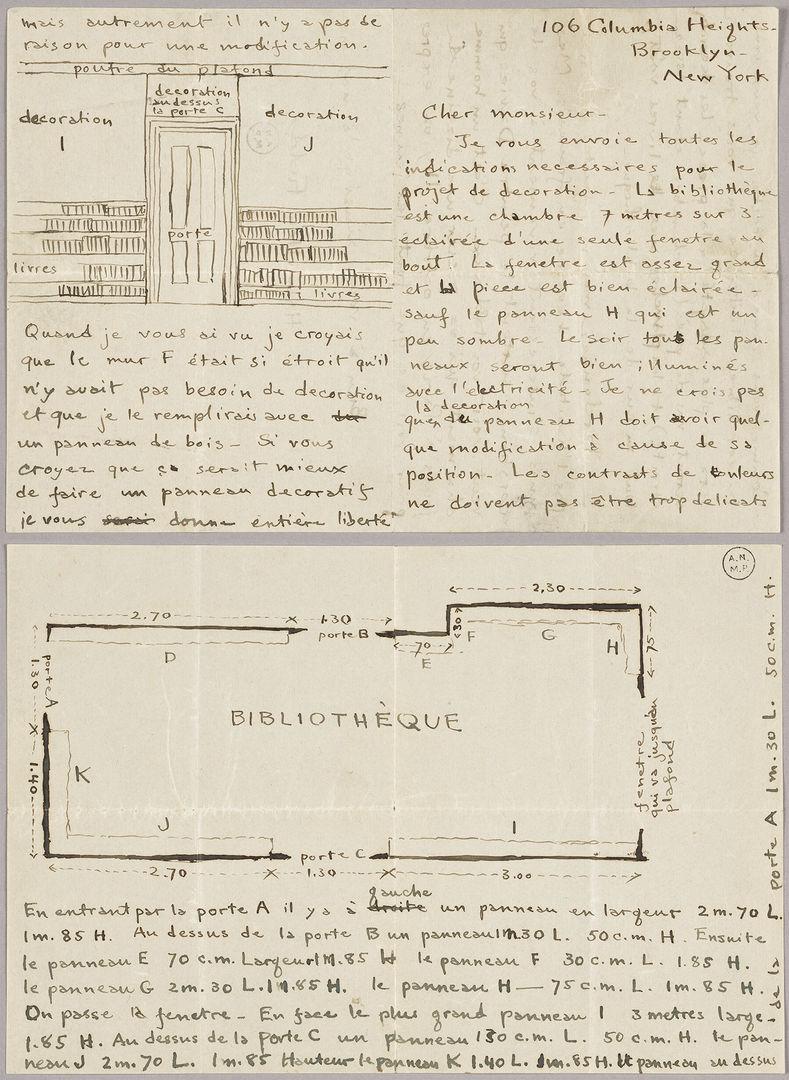 106 Columbia Heights-
Brooklyn-
New York
Cher monsieur-
Je vous envoie toutes les
indications necessaires pour le
projet de decoration - La bibliothèque
est une chambre 7 metres sur 3
éclairée d'une seule fenetre au
bout. La fenetre est assez grand
et la piece est bien éclairée -
sauf le panneau H qui est un
peu sombre - Le soir tous les pan-
neaux seront bien illuminés
avec l'electricité - Je ne crois pas
la decoration
que du panneau H doit avoir quel-
que modification à cause de sa
position - Les contrasts de couleurs
ne doivent pas être trop delicats
mais autrement il n'y a pas de
raison pour une modification.
poutre du plafond
decoration
I
decoration
au dessus
la porte C
decoration
J
porte
livres
livres
Quand je vous ai vu je croyais
que le mur F était si étroit qu'il
n'y avait pas besoin de decoration
et que je le remplirais avec du
un panneau de bois - Si vous
croyez que ça serait mieux
de faire un panneau decoratif
je vous serai donne entière liberté
A.N.
M.P.
2,30
2.70
1.30
porte B
70
E
30
F
G
H
75
D
porte A
1.30
BIBLIOTHÈQUE
fenetre
qui va jusqu'au
plafond
K
1.40
J
porte C
I
2.70
1.30
3.00
gauche
En entrant par la porte A il y a à droite un panneau en largeur 2m.70 L.
1m.85 H. Au dessus de la porte B un panneau 1m30 L. 50 c.m. H. Ensuite
le panneau E 70 c.m. Largeur 1m.85 H le panneau F 30 c.m. L. 1.85 H.
le panneau G 2m.30 L. 1m.85 H. le panneau H — 75 c.m. L. 1m.85 H.
On passe la fenetre - En face le plus grand panneau I 3 metres large-
1.85 H. Au dessus de la porte C un panneau 130 c.m. L. 50 c.m. H. le pan-
neau J 2m.70 L. 1m.85 Hauteur le panneau K 1.40 L. 1m.85 H. Et panneau au dessus
de la porte A 1m.30 L. 50 c.m. H.